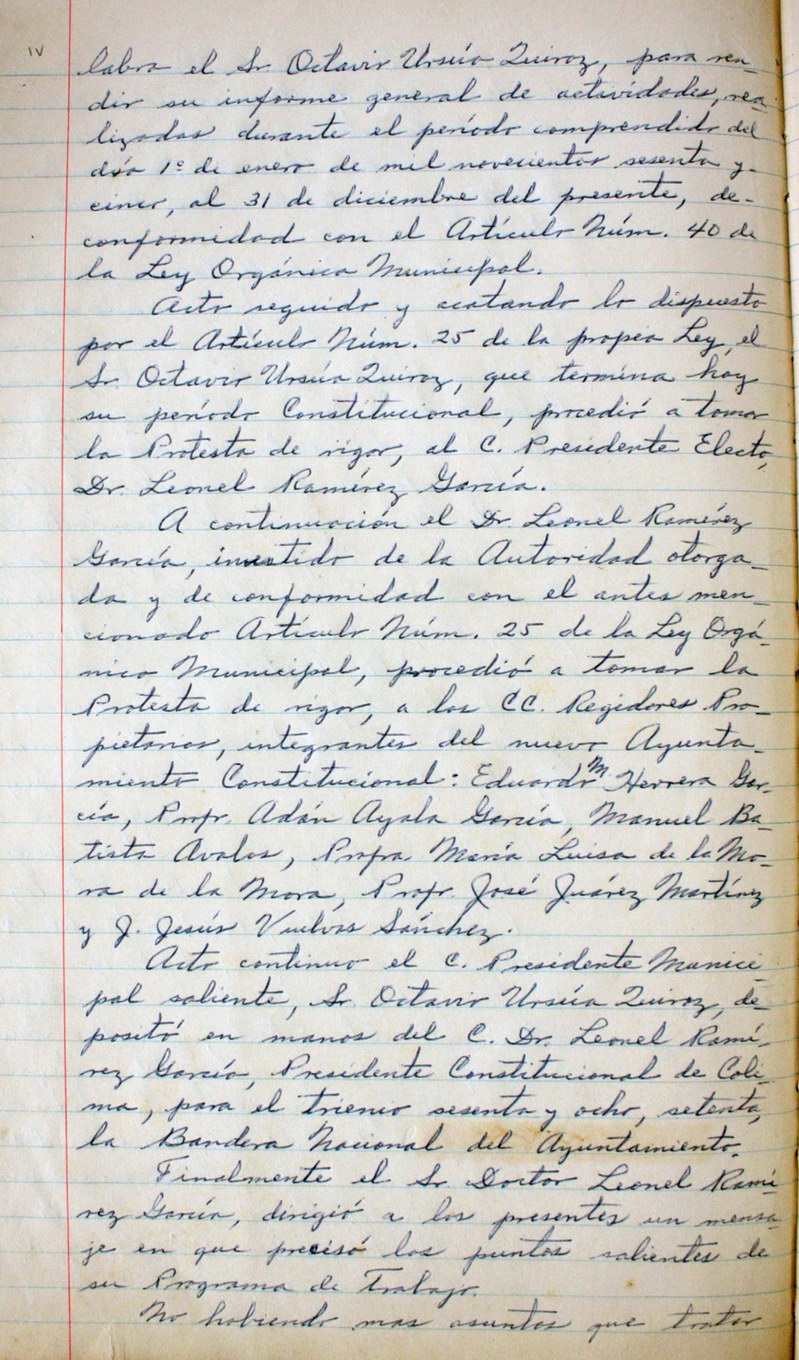 IV
labra el Sr. Octavio Ursúa Quiroz, para ren-
dir su informe general de actividades, rea-
lizadas durante el período comprendido del
día 1º de enero de mil novecientos sesenta y-
cinco, al 31 de diciembre del presente, de-
conformidad con el Artículo Núm. 40 de
la Ley Orgánica Municipal.
Acto seguido y acatando lo dispuesto
por el Artículo Núm. 25 de la propea Ley, el
Sr. Octavio Ursúa Quiroz, que termina hoy
su período Constitucional, procedió a tomar
la Protesta de rigor, al C. Presidente Electo,
Dr. Leonel Ramírez García.
A continuación el Dr. Leonel Ramírez
García, investido de la Autoridad otorga-
da y de conformidad con el antes men-
cionado Artículo Núm. 25 de la Ley Orgá-
nica Municipal, procedió a tomar la
Protesta de rigor, a los CC. Regidores Pro-
pietarios, integrantes del nuevo Ayunta-
miento Constitucional: Eduardo M. Herrera Gar-
cía, Profr. Adán Ayala García, Manuel Ba-
tista Avalos, Profra. María Luisa de la Mo-
ra de la Mora, Profr. José Juárez Martínez
y J. Jesús Vuelvas Sánchez.
Acto continuo el C. Presidente Munici-
pal saliente, Sr. Octavio Ursúa Quiroz, de-
positó en manos del C. Dr. Leonel Ramí-
rez García, Presidente Constitucional de Coli-
ma, para el trienio sesenta y ocho, setenta,
la Bandera Nacional del Ayuntamiento.
Finalmente el Sr. Doctor Leonel Ramí-
rez García, dirigió a los presentes un mensa-
je en que precisó los puntos salientes de
su Programa de Trabajo.
No habiendo mas asuntos que tratar